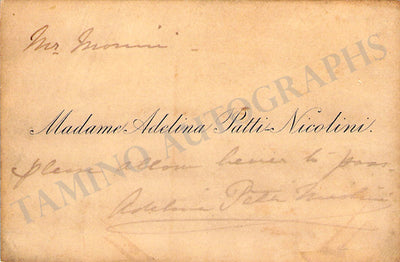 Mr.
Madame Adelina Patti-Nicolini.
please allow bearer to pass
Adelina Patti Nicolini
TAMINO AUTOGRAPHS